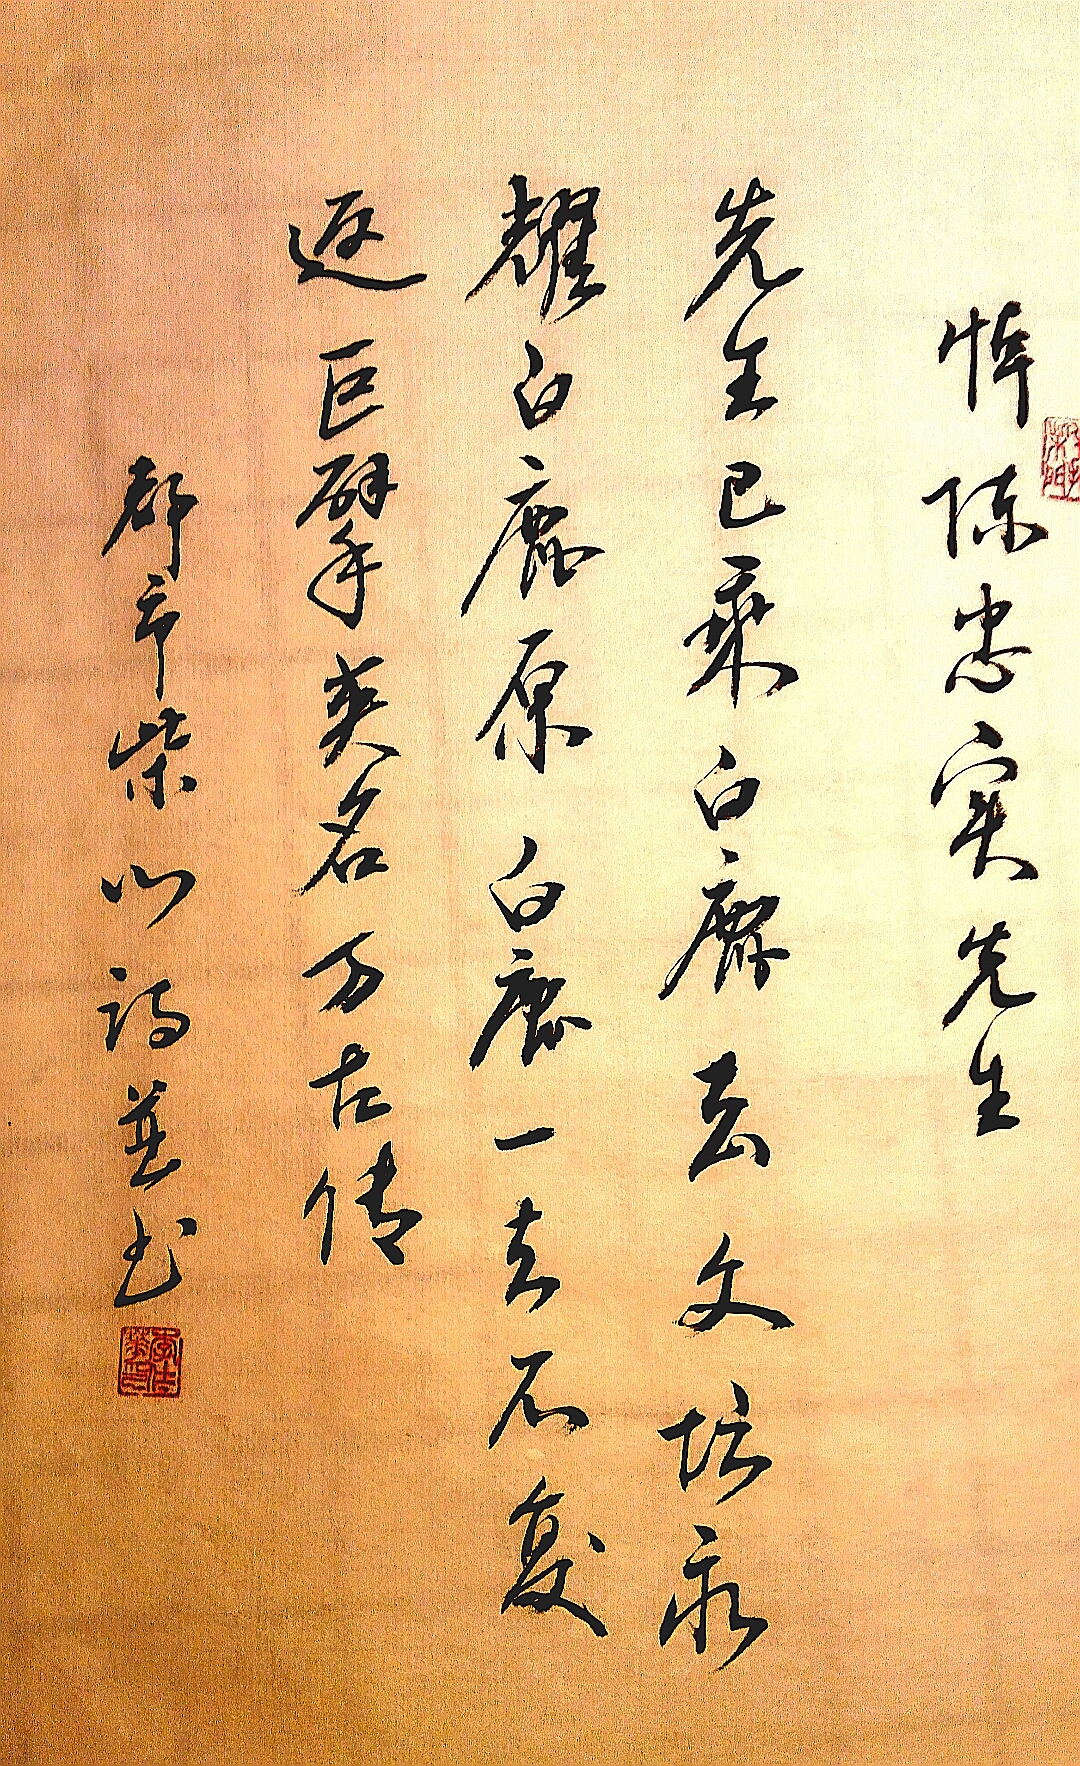 悼陈忠实先生
先生已乘白鹿去文坛永
耀白鹿原白鹿一去不复
返巨擘英名万古传
都市柴山诗并书